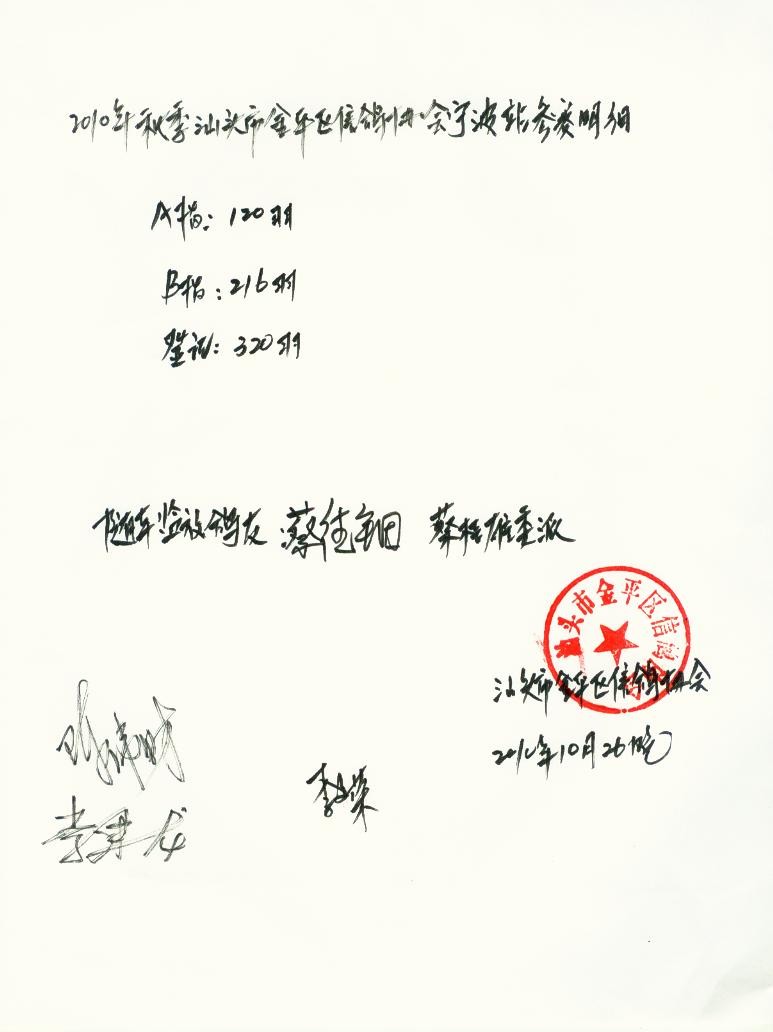 2010年秋季汕头市金平区信鸽协会宁波站参赛明细
A指：120羽
B指：216羽
鉴证：320羽
随车监放鸽友 蔡佳钿 蔡雄委派
汕头市金平区信鸽
汕头市金平区信鸽协会
2010年10月26晚
李 荣
李 龙